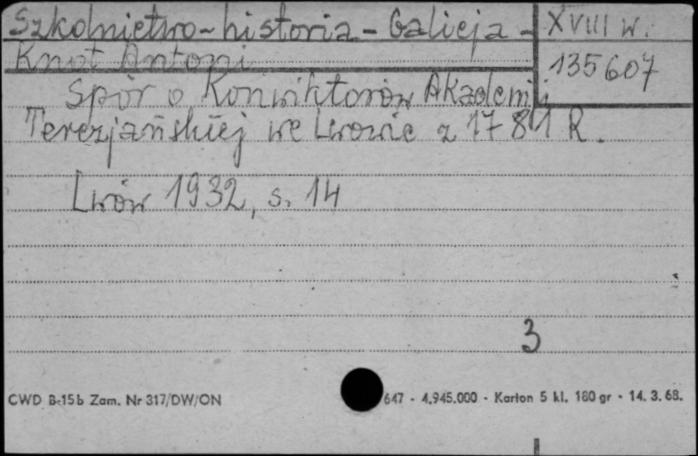 Szkolnictwo - historia - Galicja - XVIII w.
Knot Antoni
135607
Spór o Konwiktorów Akademii
Terezjańskiej we Lwowie z 1784 R.
Lwów 1932, s. 14
3
CWD B-15b Zam. Nr 317/DW/ON 647 - 4.945.000 - Karton 5 kl. 180 gr - 14. 3. 68.